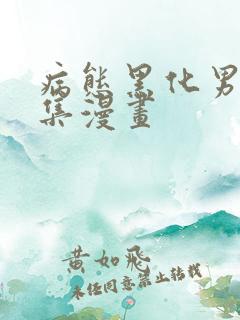 病態黑化男
集漫畫
黄如飛
未經同意禁止轉載